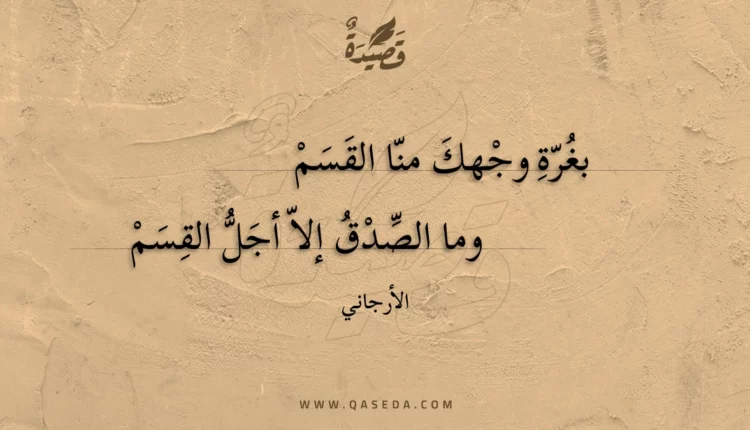 قَصِيدَةٌ
بغُرّةِ وجْهكَ منّا القَسَمْ
وما الصِّدْقُ إلاّ أجَلُّ القِسَمْ
الأرجاني
WWW.QASEDA.COM